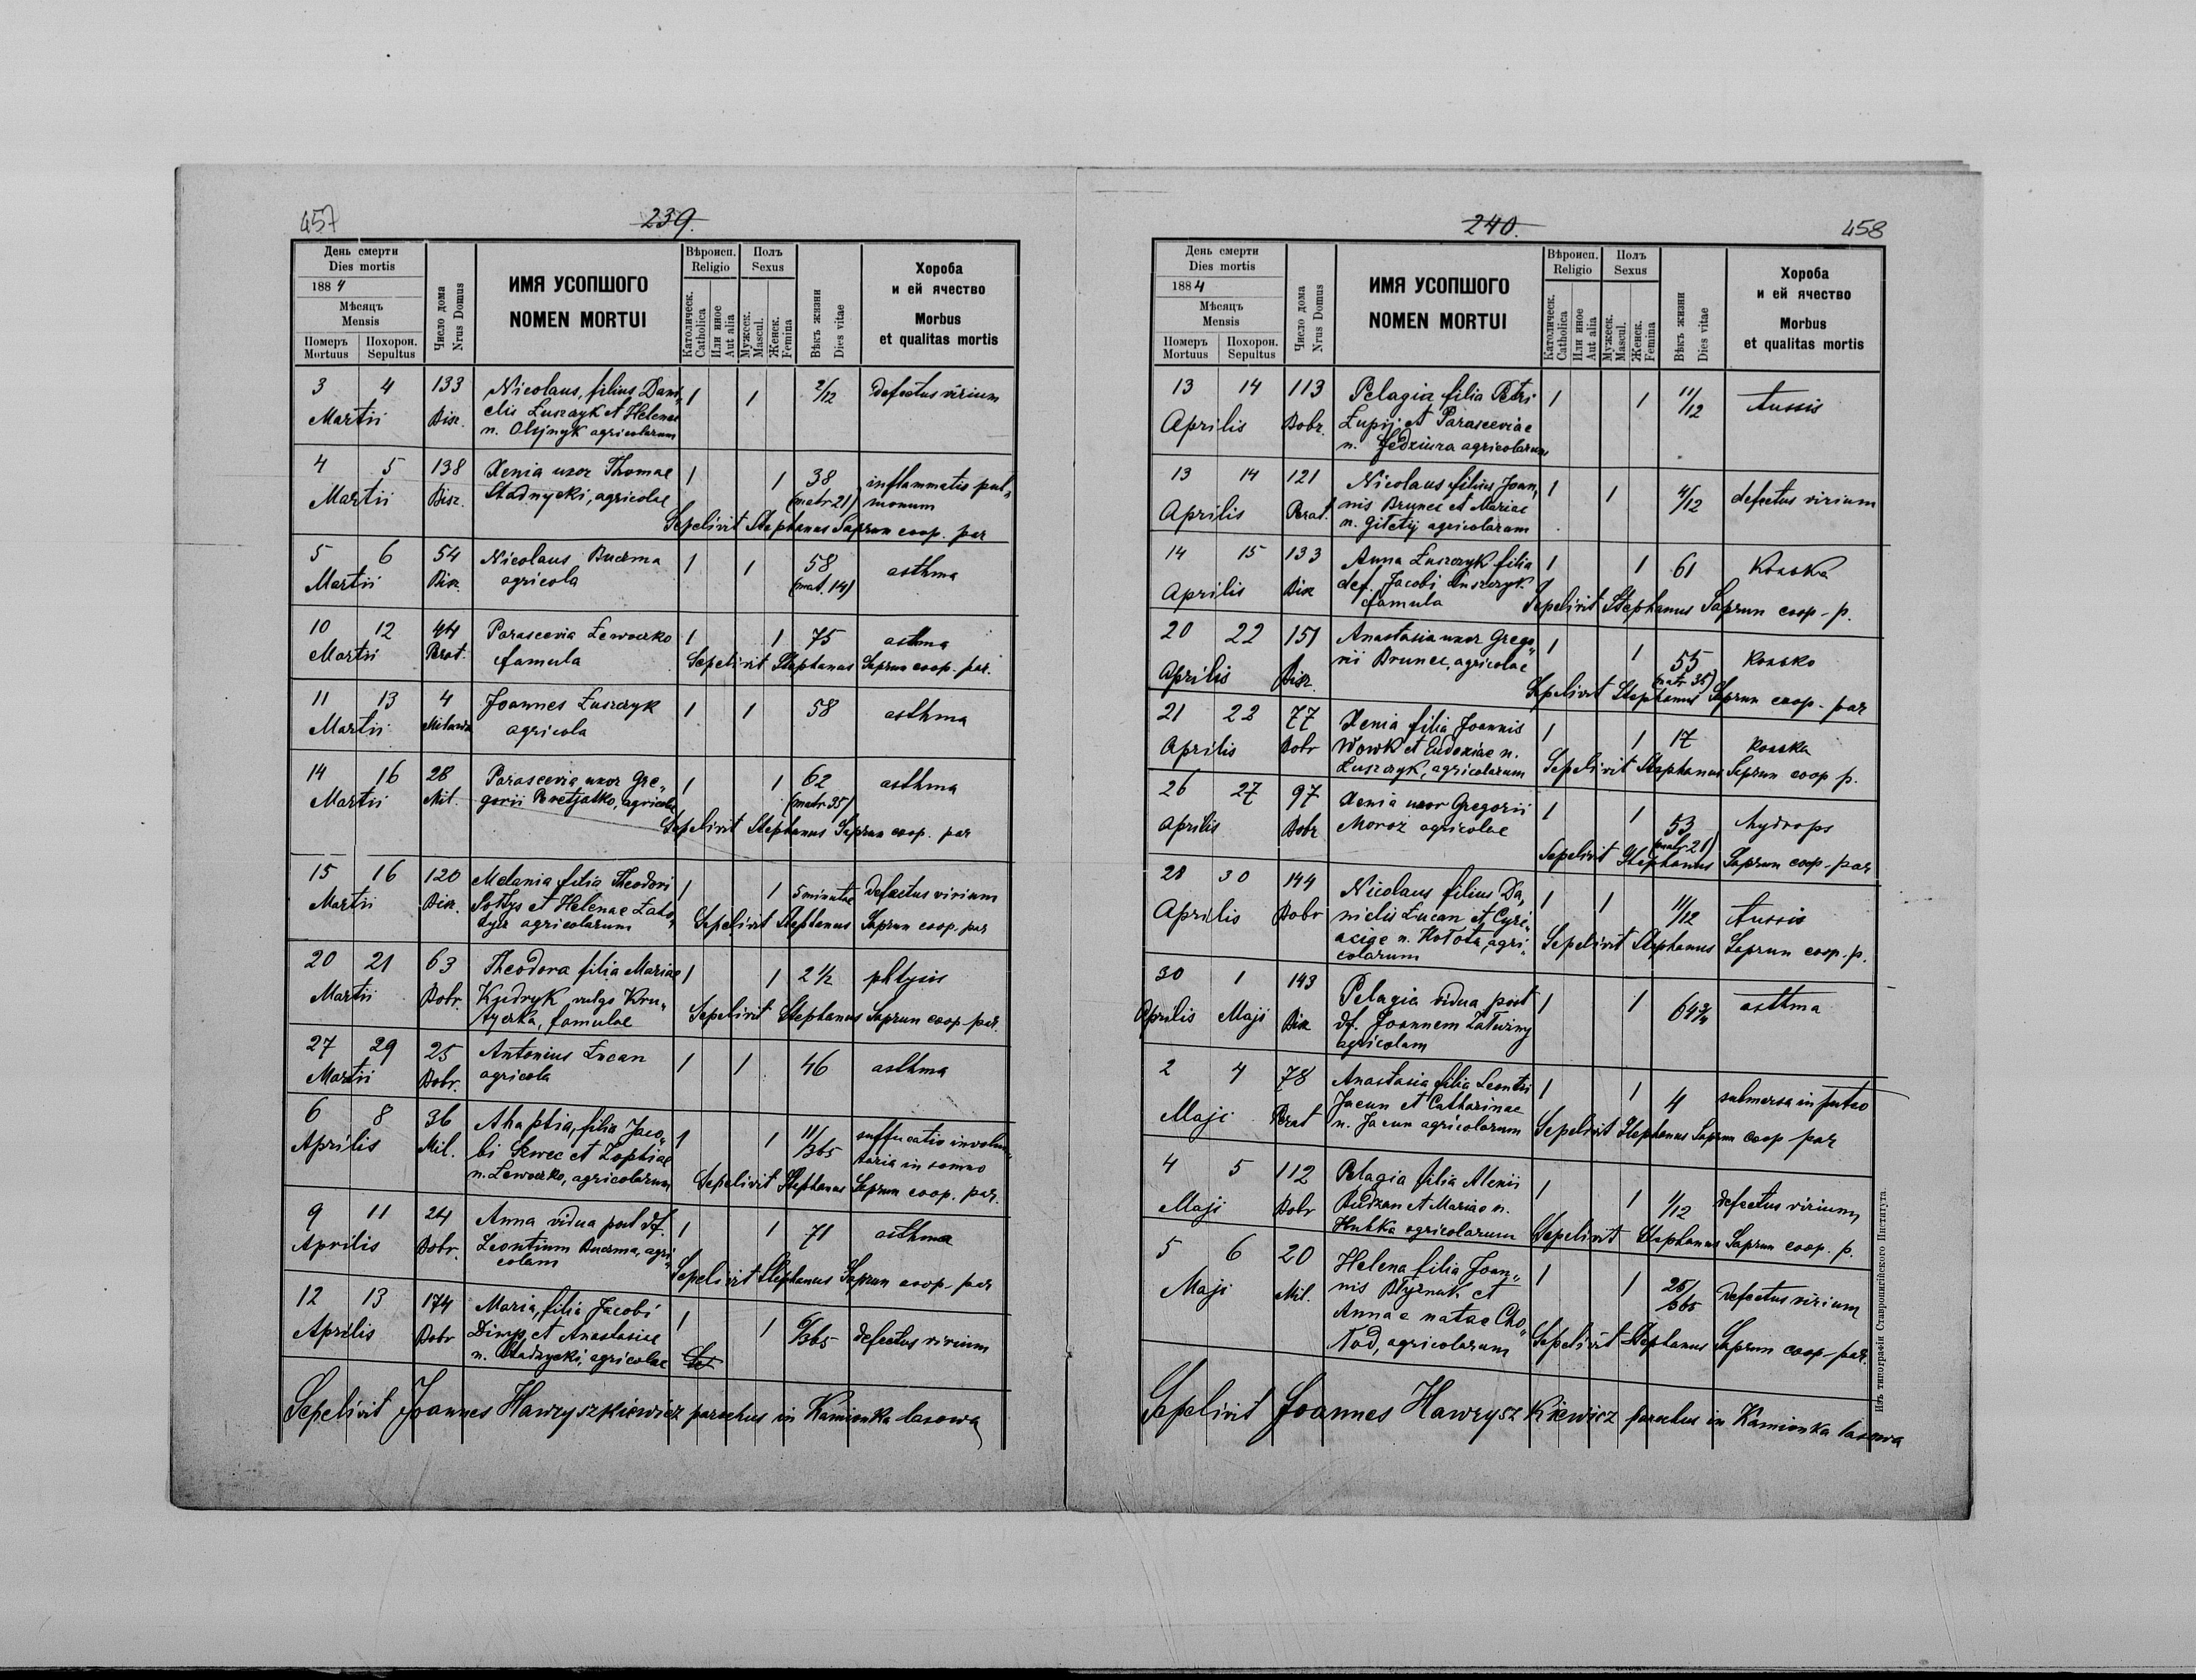 457
239.
День смерти
Dies mortis
1884
Мѣсяць
Mensis
Померъ
Mortuus
Похорон.
Sepultus
Число дома
Nrus Domus
ИМЯ УСОПШОГО
NOMEN MORTUI
Вѣроисп.
Religio
Католическ.
Catholica
Или иное
Aut alia
Полъ
Sexus
Мужеск.
Mascul.
Женск.
Femina
Вѣкъ жизни
Dies vitae
Хороба
и ей ячество
Morbus
et qualitas mortis
3 4 133 Nicolaus, filius Dani„ 1 1 2/12 defectus virium
Martii Bisz. elis Łuszczyk et Helenae
n. Olijnyk agricolarum
4 5 138 Xenia uxor Thomae 1 1 38 inflammatio pul„
Martii Bisz. Stadnycki, agricolae (matr 21) monum
Sepelivit Stephanus Saprun coop. par
5 6 54 Nicolaus Buczma 1 1 58 asthma
Martii Bisz. agricola (mat. 14)
10 12 44 Parascevia Lewoczko 1 1 75 asthma
Martii Perat. famula Sepelivit Stephanus Saprun coop. par.
11 13 4 Joannes Łuszczyk 1 1 58 asthma
Martii agricola
14 16 28 Parascevia uxor Gre„ 1 1 62 asthma
Martii Mil. gorii Peretjatko, agricolae (matr 35)
Sepelivit Stephanus Saprun coop. par
15 16 120 Melania filia Theodori 1 1 5 minutae defectus virium
Martii Bisz. Sołtys et Helenae
agricolarum Sepelivit Stephanus Saprun coop. par
20 21 63 Theodora filia Mariae 1 1 2 1/2 phtysis
Martii Bobr. Kyrdryk vulgo Kru„
tycka, famulae Sepelivit Stephanus Saprun coop. par.
27 29 25 Antonius Łucan 1 1 46 asthma
Martii Bobr. agricola
6 8 36 Ahaptia, filia Jaco„ 1 1 11/365 suffucatio involun„
Aprilis Mil. bi Szwec et Zophiae taria in somno
n. Lewoczko, agricolarum Sepelivit Stephanus Saprun coop. par.
9 11 24 Anna vidua post df. 1 1 71 asthma
Aprilis Bobr. Leontium Buczma, agri„
colam Sepelivit Stephanus Saprun coop. par
12 13 174 Maria, filia Jacobi 1 1 6/365 defectus virium
Aprilis Bobr Dimp et Anastasiae
n. Stadnycki, agricolae
Sepelivit Joannes Hawryszkiewicz parochus in Kamionka lasowa
240.
458
День смерти
Dies mortis
1884
Мѣсяць
Mensis
Померъ
Mortuus
Похорон.
Sepultus
Число дома
Nrus Domus
ИМЯ УСОПШОГО
NOMEN MORTUI
Вѣроисп.
Religio
Католическ.
Catholica
Или иное
Aut alia
Полъ
Sexus
Мужеск.
Mascul.
Женск.
Femina
Вѣкъ жизни
Dies vitae
Хороба
и ей ячество
Morbus
et qualitas mortis
13 14 113 Pelagia filia Petri 1 1 11/12 tussis
Aprilis Bobr. Łupij et Parasceviae
n. Fedziura agricolarum
13 14 121 Nicolaus filius Joan„ 1 1 4/12 defectus virium
Aprilis Perat. nis Brunec et Mariae
n. Giletij agricolarum
14 15 133 Anna Łuszczyk filia 1 1 61 Kolka
Aprilis Bisz def. Jacobi Łuszczyk
famula Sepelivit Stephanus Saprun coop. p.
20 22 151 Anastasia uxor Grego„ 1 1 55
Aprilis Bisz. rii Brunec, agricolae (matr 35)
Sepelivit Stephanus Saprun coop. par
21 22 77 Xenia filia Joannis 1 1 17
Aprilis Bobr Wowk et Eudoxiae n.
Łuszczyk, agricolarum Sepelivit Stephanus Saprun coop p.
26 27 97 Xenia uxor Gregorii 1 1 53 hydrops
Aprilis Bobr Moroz agricolae (matr 21)
Sepelivit Stephanus Saprun coop. par
28 30 144 Nicolaus filius Da„ 1 1 11/12 tussis
Aprilis Bobr nielis Łucan et Cyri„
acige n. Hołota, agri„ Sepelivit Stephanus Saprun coop. p.
colarum
30 1 143 Pelagia vidua post 1 1 64 3/4 asthma
Aprilis Maji Bisz df. Joannem Załuziny
agricolam
2 4 78 Anastasia filia Leontii 1 1 4 submersa in puteo
Maji Perat Jacun et Catharinae
n. Jacun agricolarum Sepelivit Stephanus Saprun coop par
4 5 112 Pelagia filia Alexii 1 1 1/12 defectus virium
Maji Bobr Budzan et Mariae n.
Hubka agricolarum Sepelivit Stephanus Saprun coop. p.
5 6 20 Helena filia Joan„ 1 1 25/365 defectus virium
Maji Mil. nis Błyznak et
Annae natae Cho„
Nad, agricolarum Sepelivit Stephanus Saprun coop. par.
Sepelivit Joannes Hawryszkiewicz parochus in Kamionka lasowa
Изъ типографіи Ставропигійского Института.